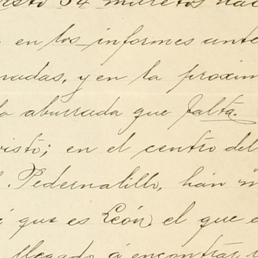 sto 34 muletos nac
en los informes ante
nadas, y en la proxim
la aburrada que falta.
isto; en el centro del
Pedernalillo, han
que es León, el que e
llegado á encontrar